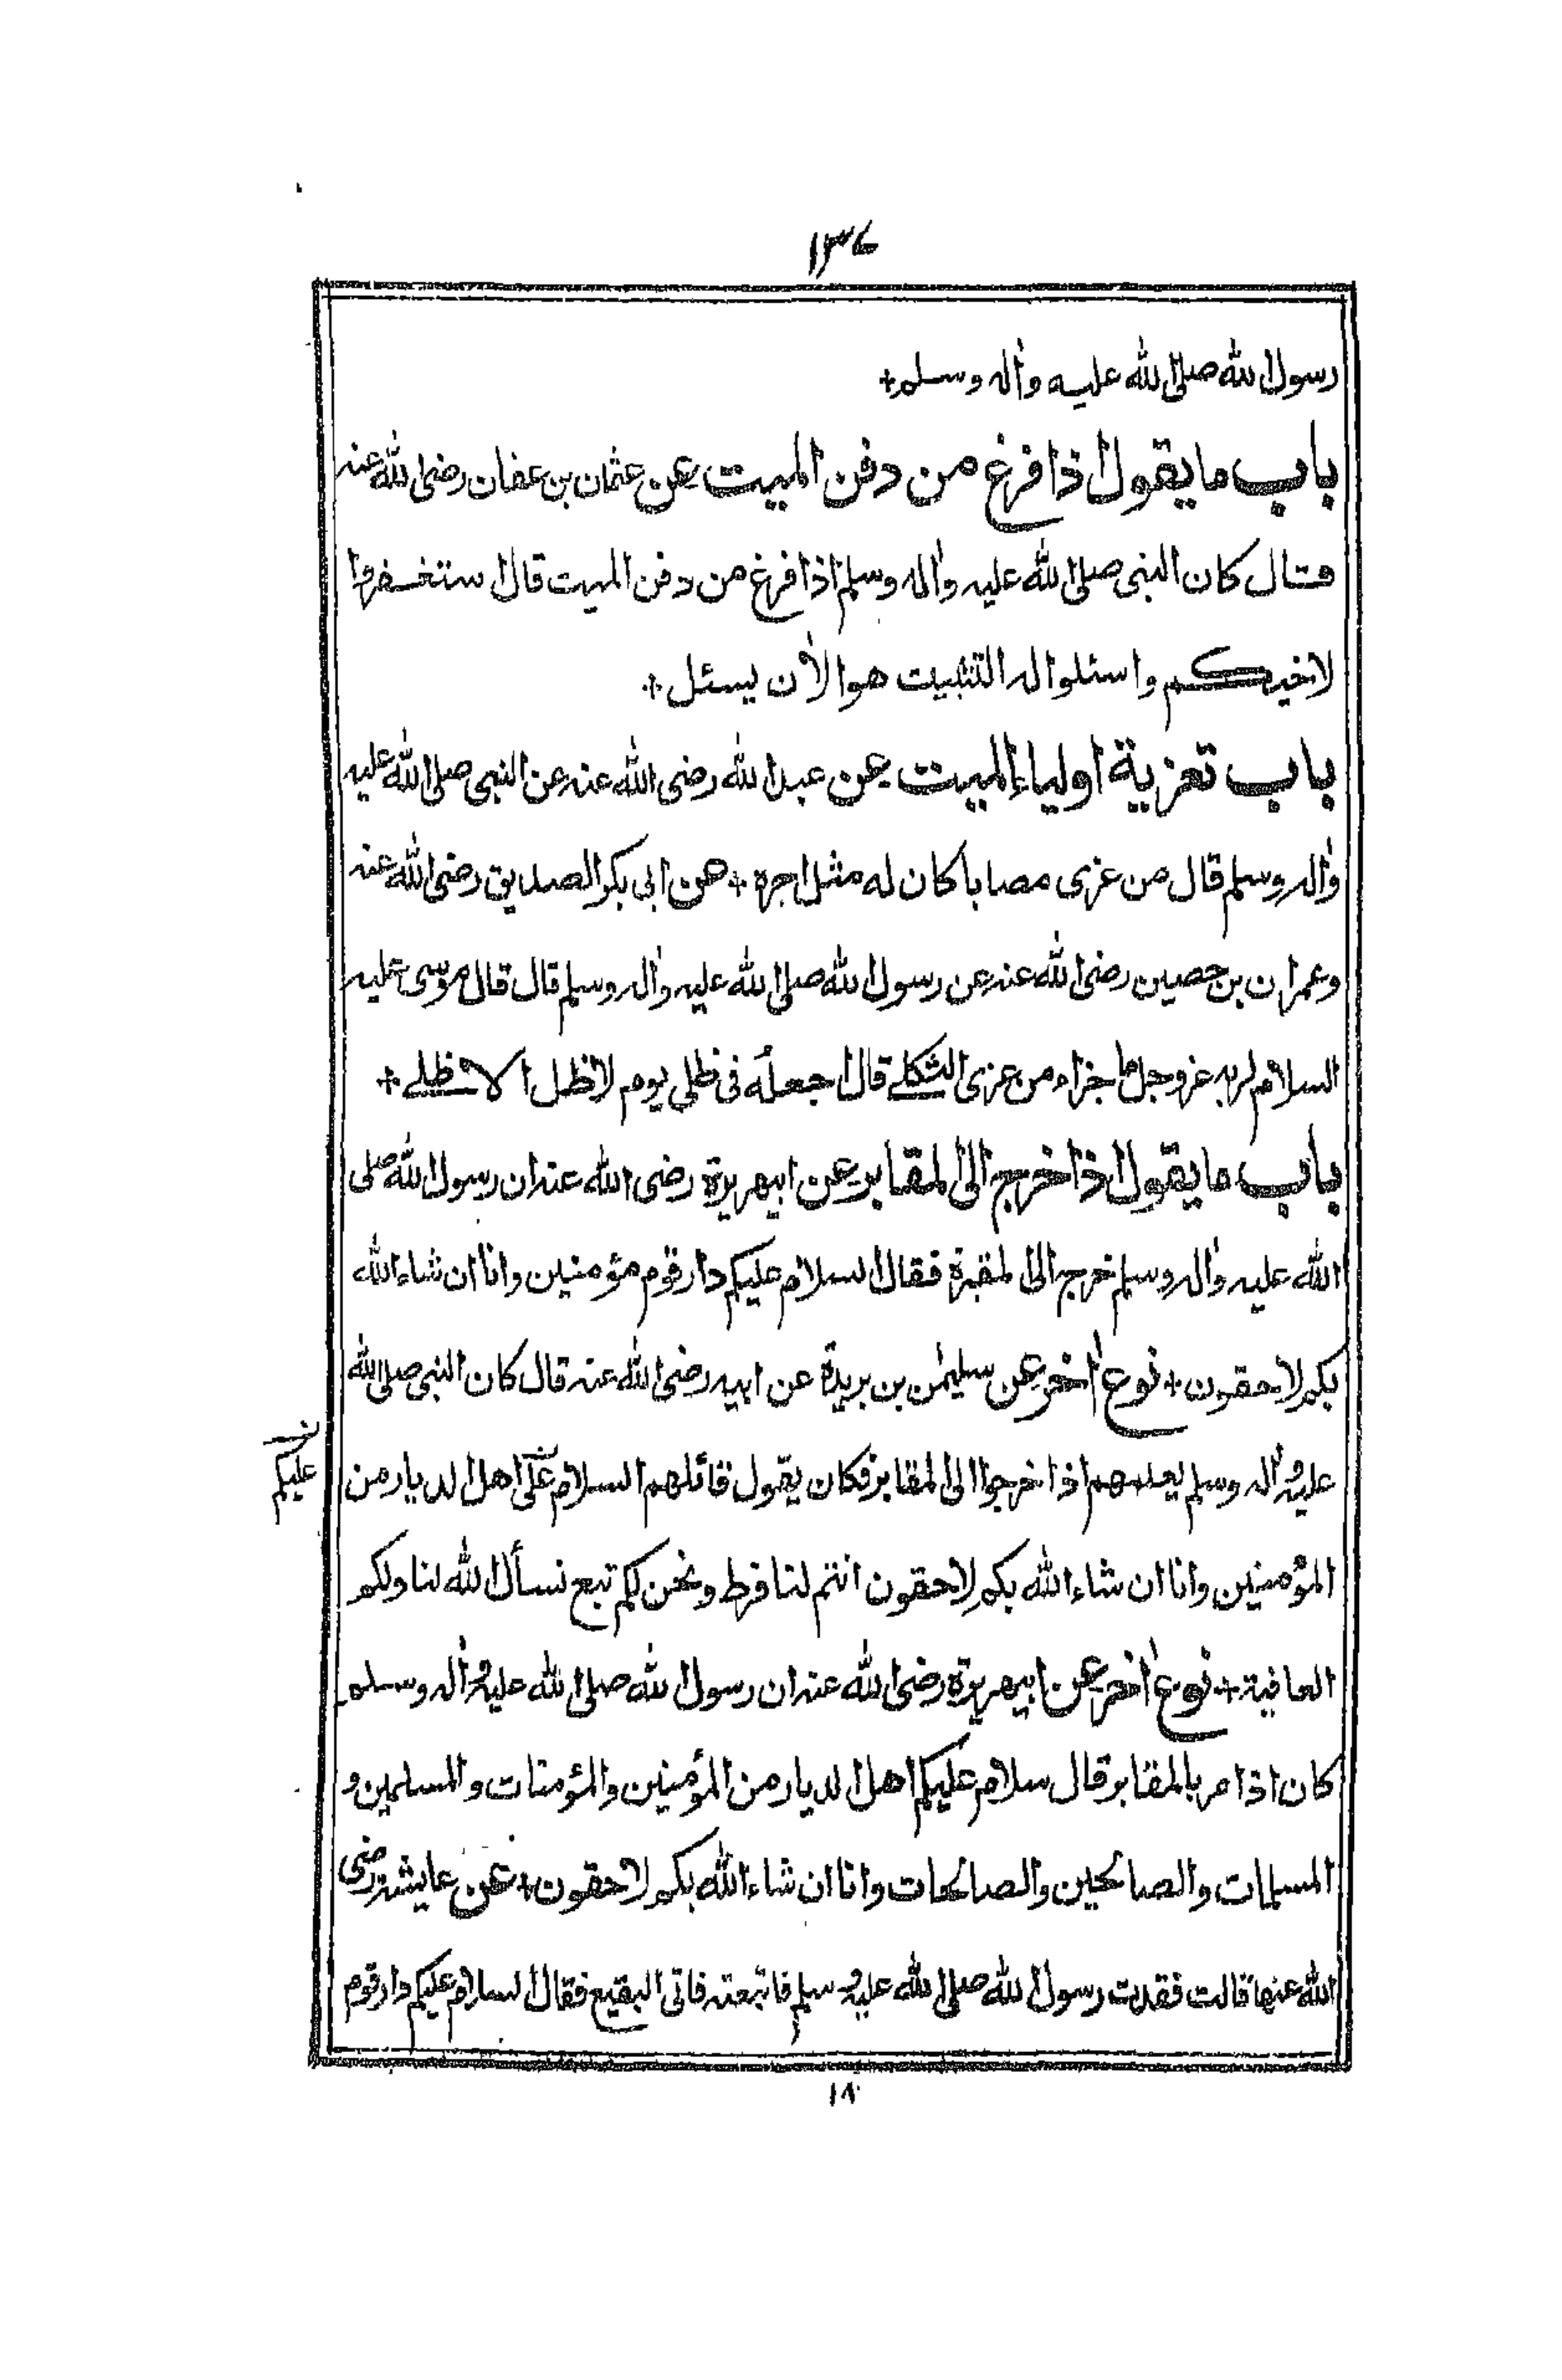 ١٣٧
رسول الله صلى الله عليه واٰله وسلم+
باب ما يقول اذا فرغ من دفن الميت عن عثمان بن عفان رضى الله عنه
قال كان النبى صلى الله عليه واٰله وسلم اذا فرغ من دفن الميت قال استغفروا
لاخيكم واسئلوا له التثبيت هو الأن يسئل+
باب تعزية اولياء الميت عن عبد الله رضى الله عنه عن النبى صلى الله عليه
واٰله وسلم قال من عزى مصابا كان له مثل اجره+ عن ابى بكر الصديق رضى الله عنه
وعمران بن حصين رضى الله عنه عن رسول الله صلى الله عليه واٰله وسلم قال قال موسى عليه
السلام لربه عز وجل ما جزاء من عزى الثكلے قال اجعله فى ظلى يوم لا ظل الا ظلے+
باب ما يقول اذا خرج الى المقابر عن ابيهريرة رضى الله عنه ان رسول الله صلى
الله عليه واٰله وسلم خرج الى المقبرة فقال السلام عليكم دار قوم مؤمنين وانا ان شاء الله
بكم لاحقون+ نوع اٰخر عن سليمٰن بن بريدة عن ابيه رضى الله عنه قال كان النبى صلى الله
عليه واٰله وسلم يعلمهم اذا خرجوا الى المقابر فكان يقول قائلهم السلام على اهل الديار من
عليكم
المؤمنين وانا ان شاء الله بكم لاحقون انتم لنا فرط ونحن لكم تبع نسأل الله لنا ولكم
العافية+ نوع اٰخر عن ابيهريرة رضى الله عنه ان رسول الله صلى الله عليه واٰله وسلم
كان اذا مر بالمقابر قال سلام عليكم اهل الديار من المؤمنين والمؤمنات والمسلمين و
المسلمات والصالحين والصالحات وانا ان شاء الله بكم لاحقون+ عن عايشة رضى
الله عنها قالت فقدت رسول الله صلى الله عليه وسلم فاتبعته فاتى البقيع فقال السلام عليكم دار قوم
١٨